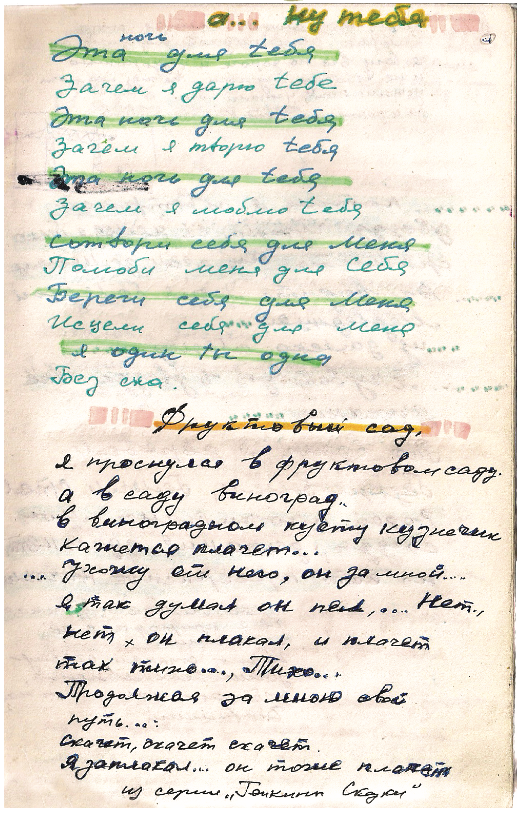 а... ну тебя
Эта ночь для tебя
Зачем я дарю tебе
Эта ночь для tебя
Зачем я творю tебя
Эта ночь для tебя
Зачем я люблю tебя
Сотвори себя для Меня
Полюби меня для Себя
Береги себя для Меня
Исцели себя для Меня
я один ты одна
Без сна.
Фруктовый сад.
Я проснулся в фруктовом саду.
а в саду виноград..
в виноградном кусту кузнечик
кажется плачет...
.... Ухожу от него, он за мной....
я так думал он пел,... Нет.,
нет, он плакал, и плачет
так тихо..., Тихо...
Продолжая за мною свой
путь...:
скачет, скачет скачет.
Я заплакал... он тоже плачет
из серии „ Сказки"